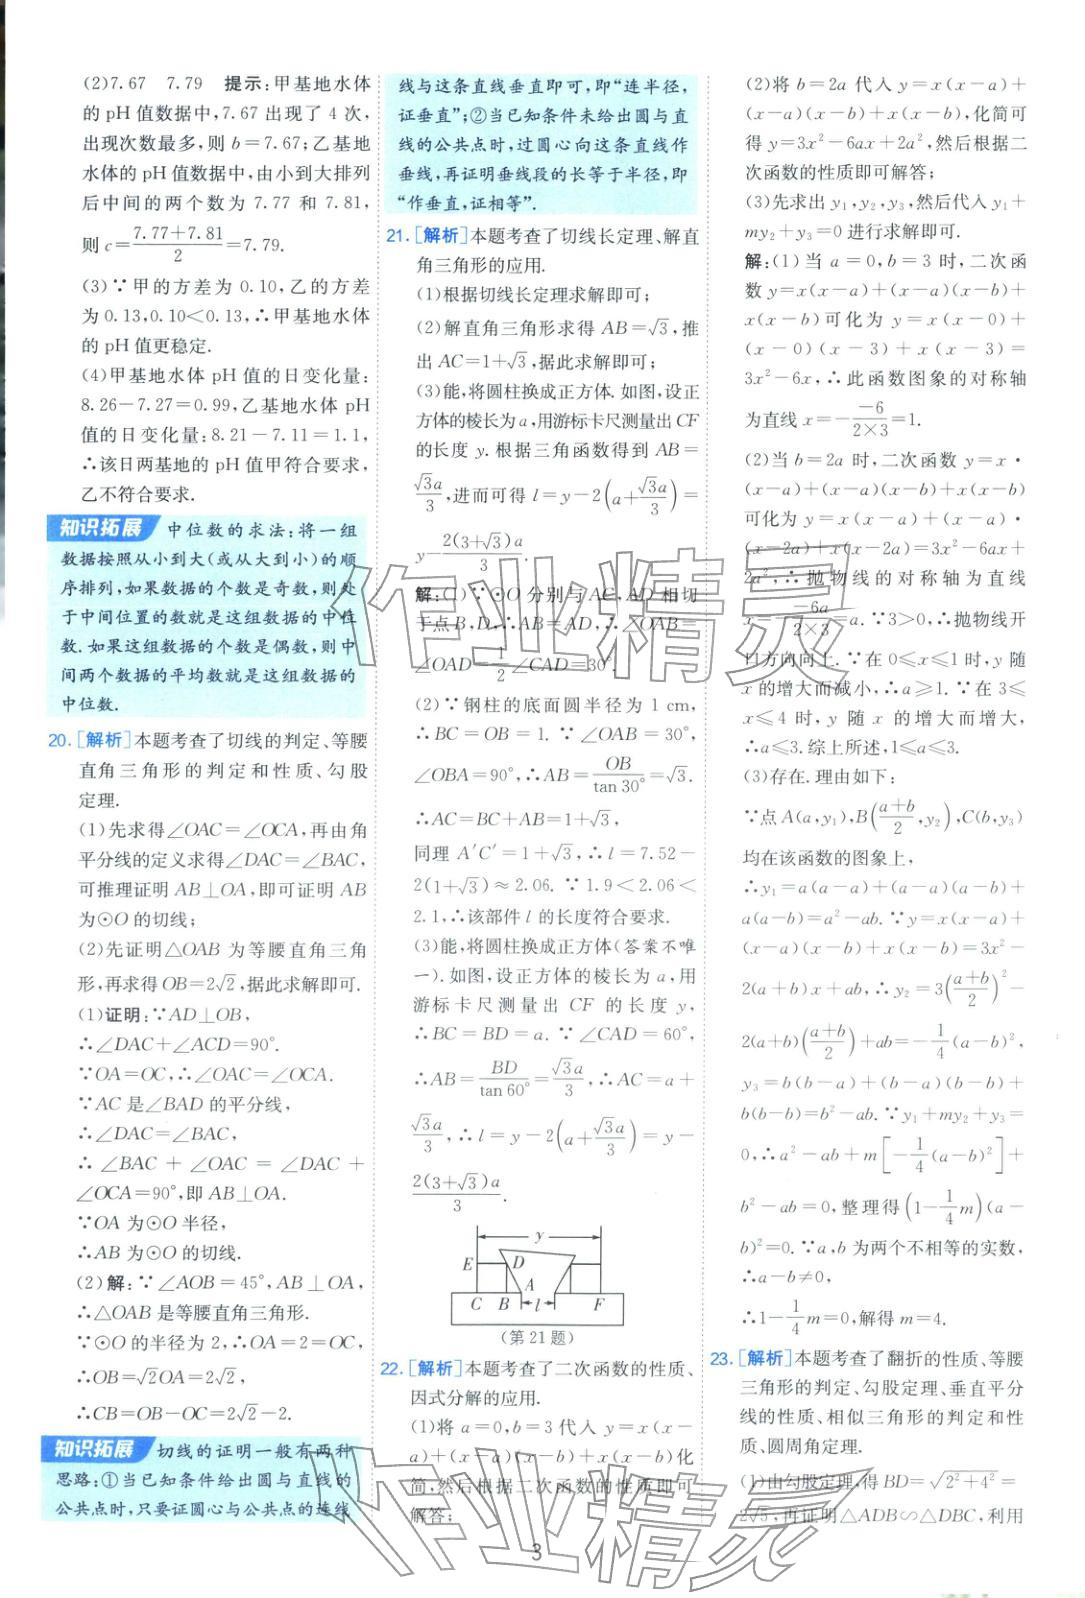 (2)7.67 7.79 提示:甲基地水体
的 pH 值数据中,7.67 出现了 4 次,
出现次数最多,则 b=7.67;乙基地
水体的 pH 值数据中,由小到大排列
后中间的两个数为 7.77 和 7.81,
则 c=\frac{7.77+7.81}{2}=7.79.
(3)∵甲的方差为 0.10,乙的方差
为 0.13,0.10<0.13,∴甲基地水体
的 pH 值更稳定.
(4)甲基地水体 pH 值的日变化量:
8.26-7.27=0.99,乙基地水体 pH
值的日变化量:8.21-7.11=1.1,
∴该日两基地的 pH 值甲符合要求,
乙不符合要求.
知识拓展 中位数的求法:将一组
数据按照从小到大(或从大到小)的顺
序排列,如果数据的个数是奇数,则处
于中间位置的数就是这组数据的中位
数.如果这组数据的个数是偶数,则中
间两个数据的平均数就是这组数据的
中位数.
20.[解析]本题考查了切线的判定、等腰
直角三角形的判定和性质、勾股
定理.
(1)先求得∠OAC=∠OCA,再由角
平分线的定义求得∠DAC=∠BAC,
可推理证明 AB⊥OA,即可证明 AB
为⊙O 的切线;
(2)先证明△OAB 为等腰直角三角
形,再求得 OB=2√2,据此求解即可.
(1)证明:∵AD⊥OB,
∴∠DAC+∠ACD=90°.
∵OA=OC,∴∠OAC=∠OCA.
∵AC 是∠BAD 的平分线,
∴∠DAC=∠BAC,
∴∠BAC+∠OAC=∠DAC+
∠OCA=90°,即 AB⊥OA.
∵OA 为⊙O 半径,
∴AB 为⊙O 的切线.
(2)解:∵∠AOB=45°,AB⊥OA,
∴△OAB 是等腰直角三角形.
∵⊙O 的半径为 2,∴OA=2=OC,
∴OB=√2OA=2√2,
∴CB=OB-OC=2√2-2.
知识拓展 切线的证明一般有两种
思路:①当已知条件给出圆与直线的
公共点时,只要证圆心与公共点的连线
线与这条直线垂直即可,即“连半径,
证垂直”;②当已知条件未给出圆与直
线的公共点时,过圆心向这条直线作
垂线,再证明垂线段的长等于半径,即
“作垂直,证相等”.
21.[解析]本题考查了切线长定理、解直
角三角形的应用.
(1)根据切线长定理求解即可;
(2)解直角三角形求得 AB=√3,推
出 AC=1+√3,据此求解即可;
(3)能,将圆柱换成正方体.如图,设正
方体的棱长为 a,用游标卡尺测量出 CF
的长度 y.根据三角函数得到 AB=
\frac{√3a}{3},进而可得 l=y-2(a+\frac{√3a}{3})=
y-\frac{2(3+√3)a}{3}.
解:(1)∵⊙O 分别与 AC,AD 相切
于点 B,D,∴AB=AD,∴∠OAB=
∠OAD=\frac{1}{2}∠CAD=30°.
(2)∵钢柱的底面圆半径为 1 cm,
∴BC=OB=1.∵∠OAB=30°,
∠OBA=90°,∴AB=\frac{OB}{tan 30°}=√3.
∴AC=BC+AB=1+√3,
同理 A′C′=1+√3,∴l=7.52-
2(1+√3)≈2.06.∵1.9<2.06<
2.1,∴该部件 l 的长度符合要求.
(3)能,将圆柱换成正方体(答案不唯
一).如图,设正方体的棱长为 a,用
游标卡尺测量出 CF 的长度 y,
∴BC=BD=a.∵∠CAD=60°,
∴AB=\frac{BD}{tan 60°}=\frac{√3a}{3},∴AC=a+
\frac{√3a}{3},∴l=y-2(a+\frac{√3a}{3})=y-
\frac{2(3+√3)a}{3}.
y
E D
A
C B l F
(第 21 题)
22.[解析]本题考查了二次函数的性质、
因式分解的应用.
(1)将 a=0,b=3 代入 y=x(x-
a)+(x-a)(x-b)+x(x-b)化
简,然后根据二次函数的性质即可
解答;
(2)将 b=2a 代入 y=x(x-a)+
(x-a)(x-b)+x(x-b),化简可
得 y=3x²-6ax+2a²,然后根据二
次函数的性质即可解答;
(3)先求出 y₁,y₂,y₃,然后代入 y₁+
my₂+y₃=0 进行求解即可.
解:(1)当 a=0,b=3 时,二次函
数 y=x(x-a)+(x-a)(x-b)+
x(x-b)可化为 y=x(x-0)+
(x-0)(x-3)+x(x-3)=
3x²-6x,∴此函数图象的对称轴
为直线 x=-\frac{-6}{2×3}=1.
(2)当 b=2a 时,二次函数 y=x·
(x-a)+(x-a)(x-b)+x(x-b)
可化为 y=x(x-a)+(x-a)·
(x-2a)+x(x-2a)=3x²-6ax+
2a²,∴抛物线的对称轴为直线
x=-\frac{-6a}{2×3}=a.∵3>0,∴抛物线开
口方向向上.∵在 0≤x≤1 时,y 随
x 的增大而减小,∴a≥1.∵在 3≤
x≤4 时,y 随 x 的增大而增大,
∴a≤3.综上所述,1≤a≤3.
(3)存在.理由如下:
∵点 A(a,y₁),B(\frac{a+b}{2},y₂),C(b,y₃)
均在该函数的图象上,
∴y₁=a(a-a)+(a-a)(a-b)+
a(a-b)=a²-ab.∵y=x(x-a)+
(x-a)(x-b)+x(x-b)=3x²-
2(a+b)x+ab,∴y₂=3(\frac{a+b}{2})²-
2(a+b)(\frac{a+b}{2})+ab=-\frac{1}{4}(a-b)²,
y₃=b(b-a)+(b-a)(b-b)+
b(b-b)=b²-ab.∵y₁+my₂+y₃=
0,∴a²-ab+m[-\frac{1}{4}(a-b)²]+
b²-ab=0,整理得(1-\frac{1}{4}m)(a-
b)²=0.∵a,b 为两个不相等的实数,
∴a-b≠0,
∴1-\frac{1}{4}m=0,解得 m=4.
23.[解析]本题考查了翻折的性质、等腰
三角形的判定、勾股定理、垂直平分
线的性质、相似三角形的判定和性
质、圆周角定理.
(1)由勾股定理,得 BD=√(2²+4²)=
2√5,再证明△ADB∽△DBC,利用
3
作业精灵
作业精灵